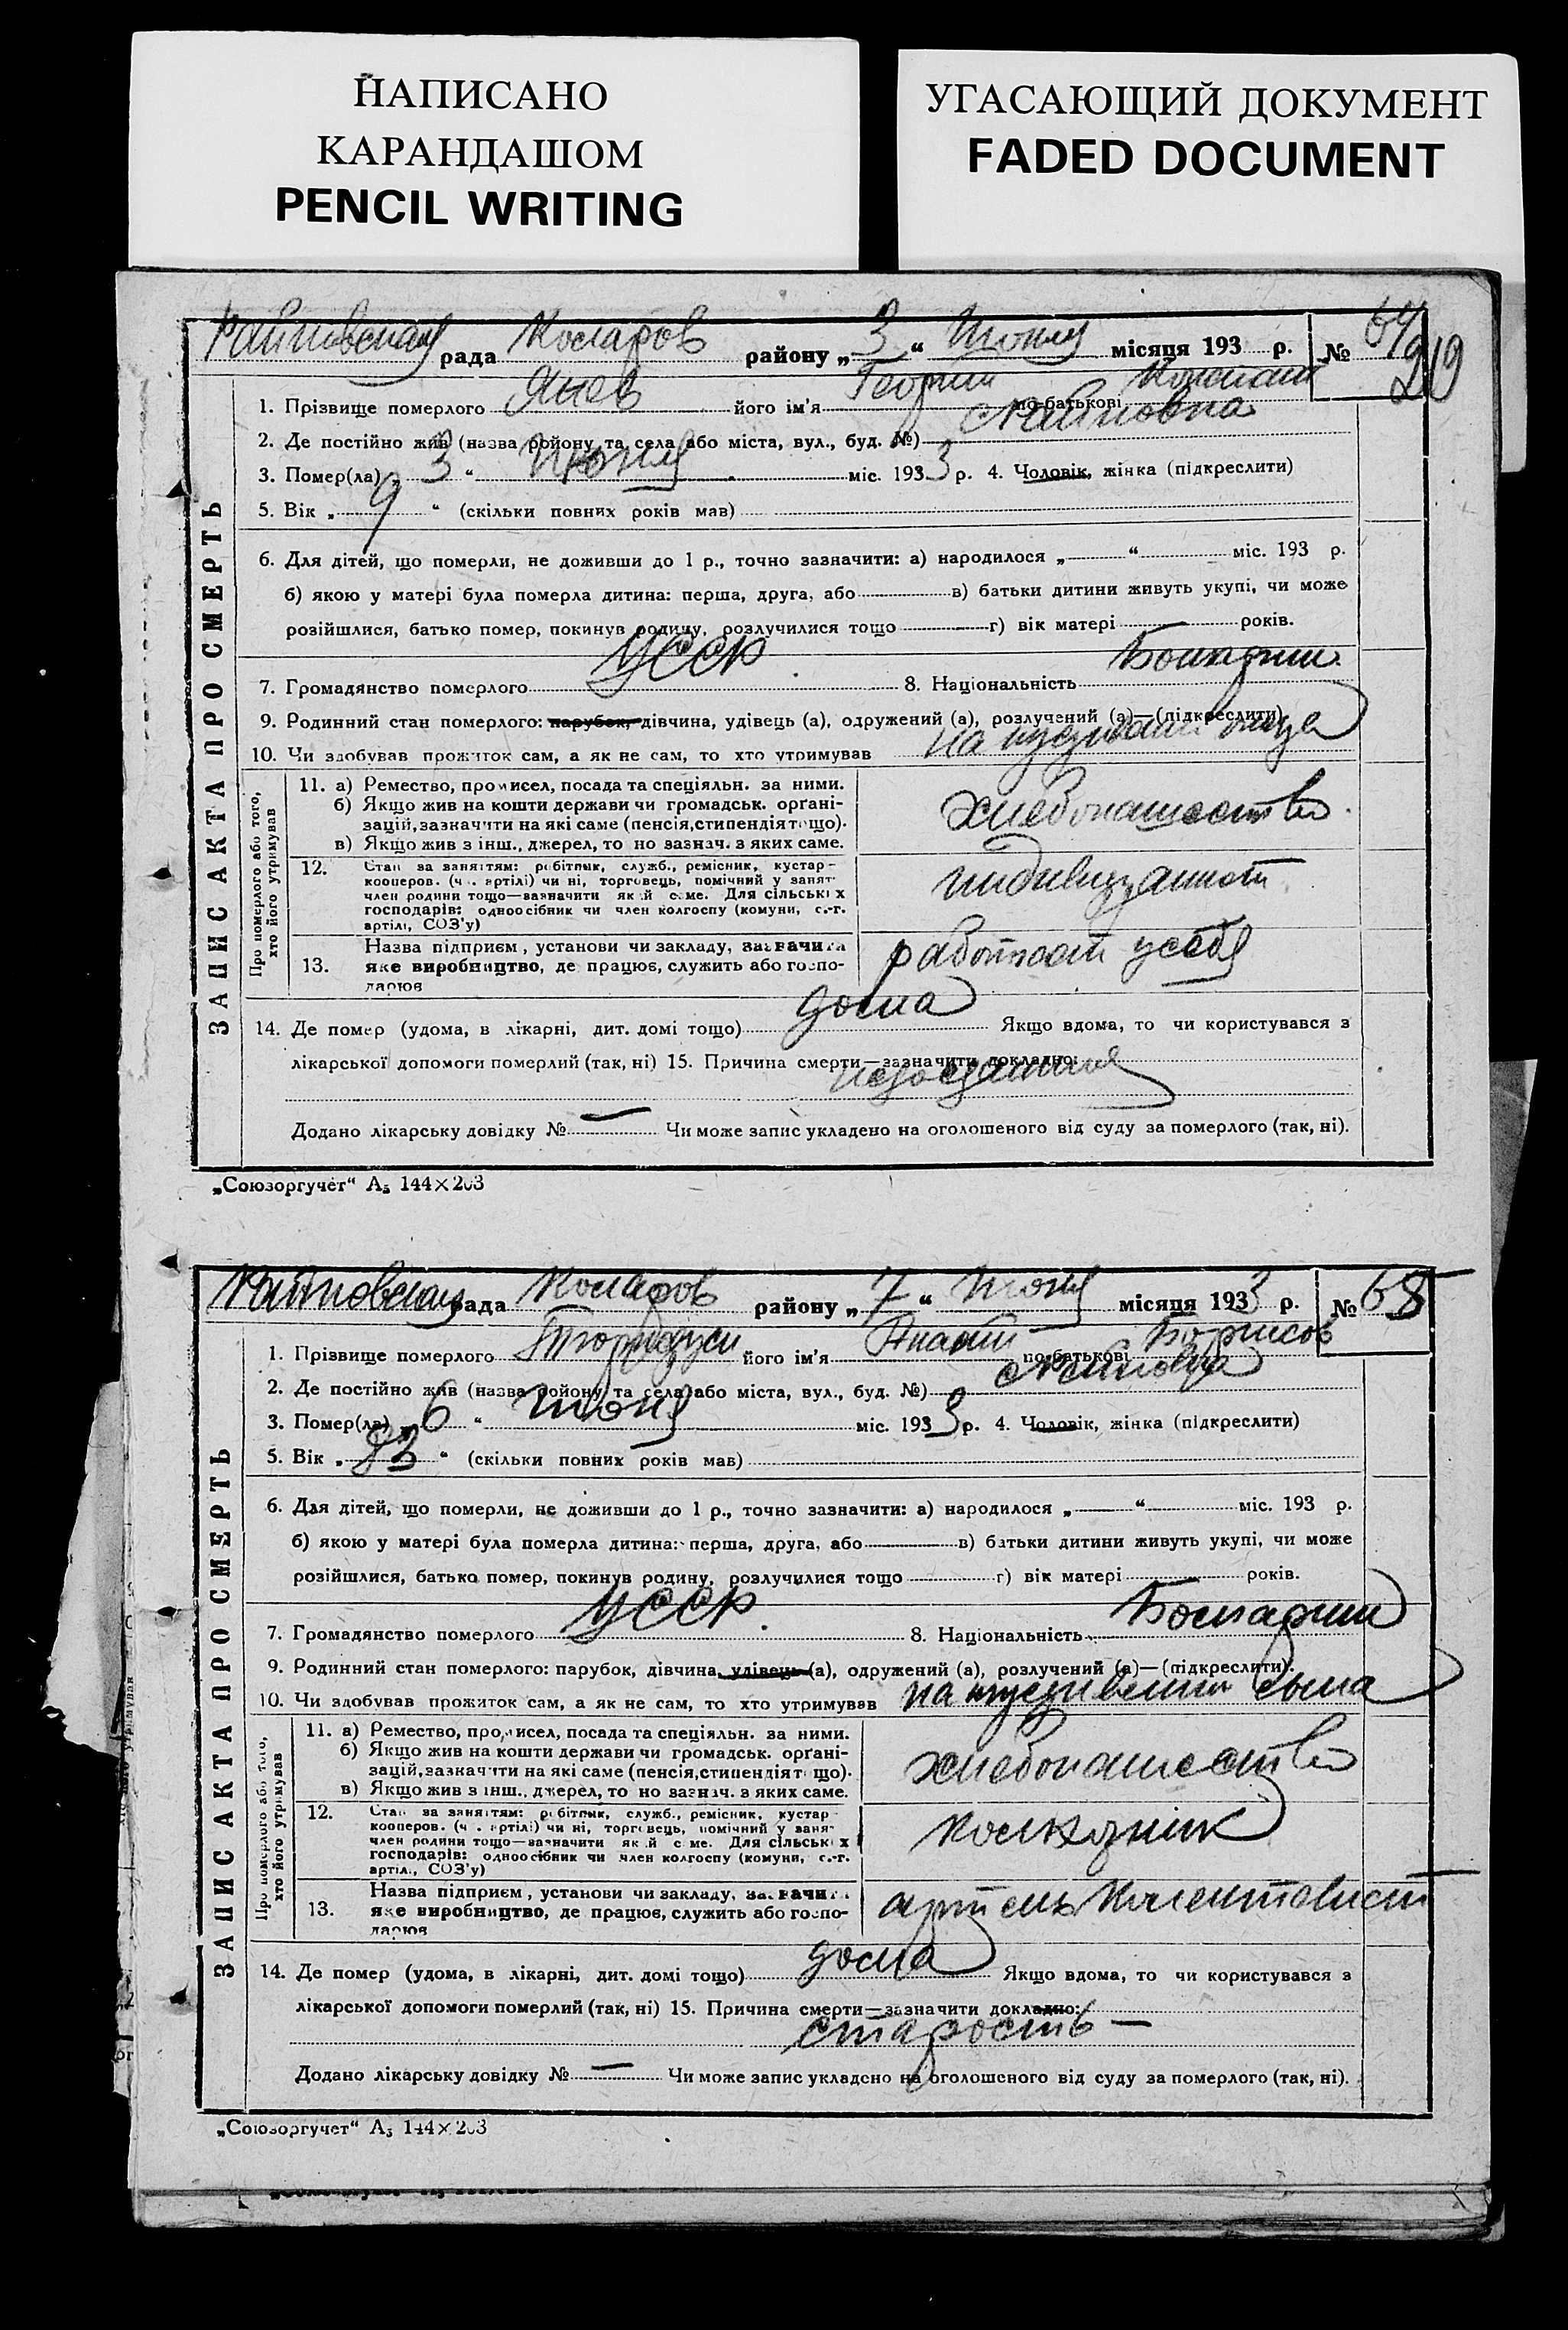 НАПИСАНО
КАРАНДАШОМ
PENCIL WRITING
УГАСАЮЩИЙ ДОКУМЕНТ
FADED DOCUMENT
рада Коларов району „ 3 “ Июня місяця 193 р. № 64
219
1. Прізвище померлого Янев його ім'я Георгий по-батькові
2. Де постійно жив (назва району та села або міста, вул., буд. №)
3. Помер(ла) „ 3 “ Июня міс. 193 3 р. 4. Чоловік, жінка (підкреслити)
5. Вік „ “ (скільки повних років мав)
6. Для дітей, що померли, не доживши до 1 р., точно зазначити: а) народилося „ “ міс. 193 р.
б) якою у матері була померла дитина: перша, друга, або в) батьки дитини живуть укупі, чи може
розійшлися, батько помер, покинув родину, розлучилися тощо г) вік матері років.
7. Громадянство померлого УССР 8. Національність Болгарин
9. Родинний стан померлого: парубок, дівчина, удівець (а), одружений (а), розлучений (а)—(підкреслити)
10. Чи здобував прожиток сам, а як не сам, то хто утримував на иждивении отца
ЗАПИС АКТА ПРО СМЕРТЬ
Про померлого або того, хто його утримував
11. а) Ремество, промисел, посада та спеціяльн. за ними.
б) Якщо жив на кошти держави чи громадськ. орґані-
зацій, зазначити на які саме (пенсія, стипендія тощо).
в) Якщо жив з інш., джерел, то но зазнач. з яких саме.
хлебопашество
12. Стан за заняттям: робітник, служб., ремісник, кустар-
кооперов. (чл. артілі) чи ні, торговець, помічний у занят
член родини тощо—зазначити який саме. Для сільських
господарів: одноосібник чи член колгоспу (комуни, с.-г.
артілі, СОЗ'у)
13. Назва підприєм, установи чи закладу, зазначити
яке виробництво, де працює, служить або госпо-
дарює
работает у себя
14. Де помер (удома, в лікарні, дит. домі тощо) дома Якщо вдома, то чи користувався з
лікарської допомоги померлий (так, ні) 15. Причина смерти—зазначити докладно:
недоедание
Додано лікарську довідку № — Чи може запис укладено на оголошеного від суду за померлого (так, ні).
„Союзоргучёт“ А₅ 144×203
рада Коларов району „ 7 “ Июня місяця 193 3 р. № 65
1. Прізвище померлого його ім'я по-батькові Борисов
2. Де постійно жив (назва району та села або міста, вул., буд. №)
3. Помер(ла) „ 6 “ Июня міс. 193 3 р. 4. Чоловік, жінка (підкреслити)
5. Вік „ 83 “ (скільки повних років мав)
6. Для дітей, що померли, не доживши до 1 р., точно зазначити: а) народилося „ “ міс. 193 р.
б) якою у матері була померла дитина: перша, друга, або в) батьки дитини живуть укупі, чи може
розійшлися, батько помер, покинув родину, розлучилися тощо г) вік матері років.
7. Громадянство померлого УССР. 8. Національність Болгарин
9. Родинний стан померлого: парубок, дівчина, удівець (а), одружений (а), розлучений (а)—(підкреслити).
10. Чи здобував прожиток сам, а як не сам, то хто утримував на иждивении сына
ЗАПИС АКТА ПРО СМЕРТЬ
Про померлого або того, хто його утримував
11. а) Ремество, промисел, посада та спеціяльн. за ними.
б) Якщо жив на кошти держави чи громадськ. орґані-
зацій, зазначити на які саме (пенсія, стипендія тощо).
в) Якщо жив з інш., джерел, то но зазнач. з яких саме.
хлебопашество
12. Стан за заняттям: робітник, служб., ремісник, кустар
кооперов. (чл. артілі) чи ні, торговець, помічний у занят
член родини тощо—зазначити який саме. Для сільських
господарів: одноосібник чи член колгоспу (комуни, с.-г.
артілі, СОЗ'у)
колхозник
13. Назва підприєм, установи чи закладу, зазначити
яке виробництво, де працює, служить або госпо-
дарює
артель Колективист
14. Де помер (удома, в лікарні, дит. домі тощо) дома Якщо вдома, то чи користувався з
лікарської допомоги померлий (так, ні) 15. Причина смерти—зазначити докладно:
старость —
Додано лікарську довідку № — Чи може запис укладено на оголошеного від суду за померлого (так, ні).
„Союзоргучет“ А₅ 144×203